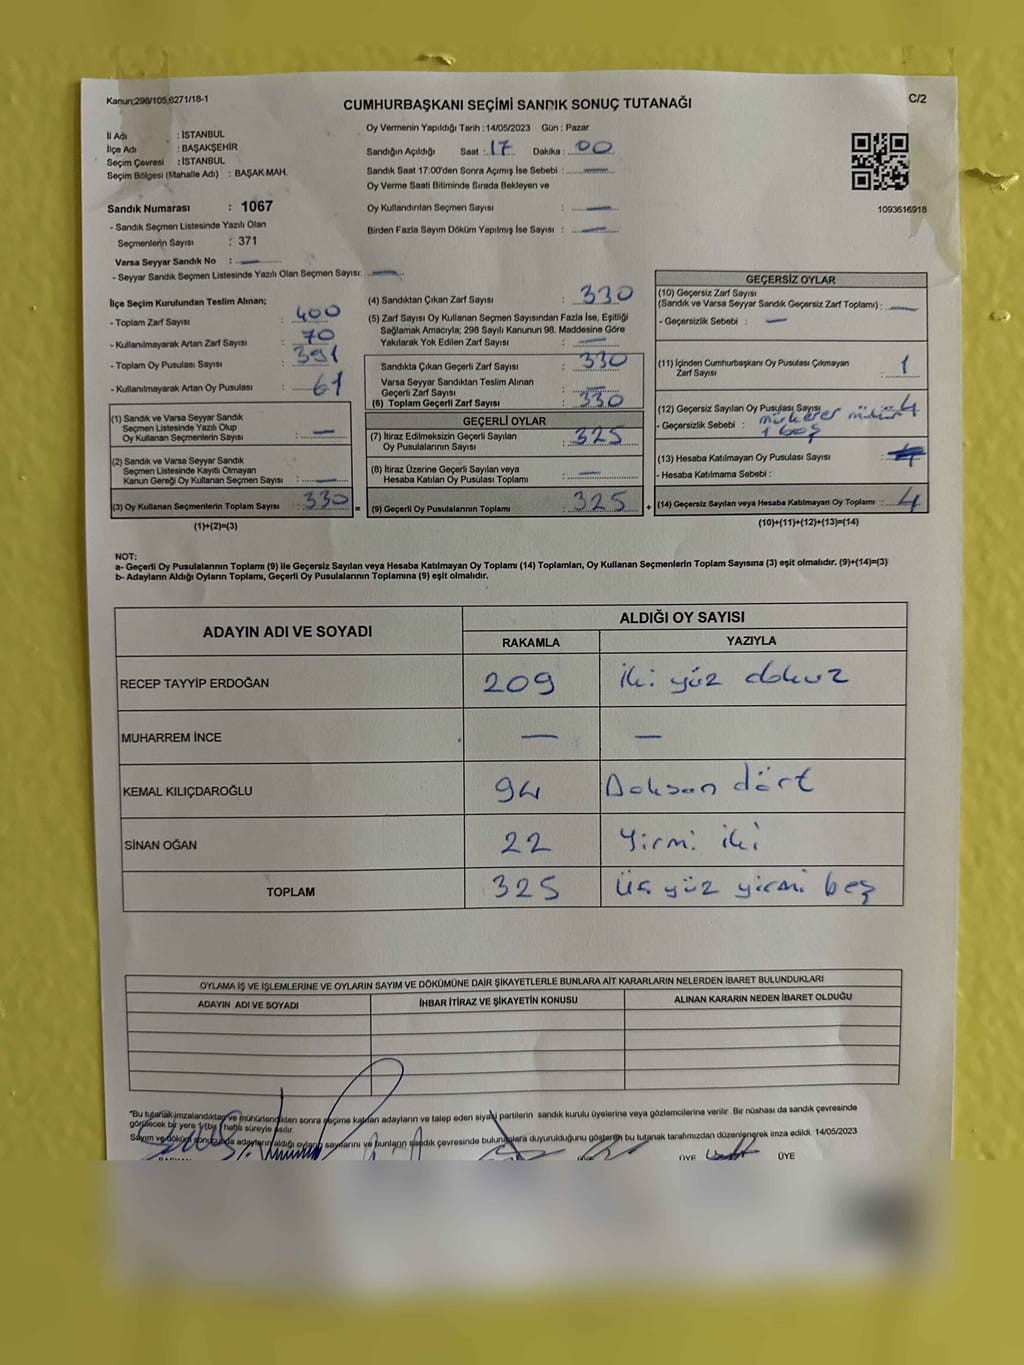 Kanun;298/105,6271/18-1
C/2
CUMHURBAŞKANI SEÇİMİ SANDIK SONUÇ TUTANAĞI
İl Adı : İSTANBUL
İlçe Adı : BAŞAKŞEHİR
Seçim Çevresi : İSTANBUL
Seçim Bölgesi (Mahalle Adı) : BAŞAK MAH.
Sandık Numarası : 1067
- Sandık Seçmen Listesinde Yazılı Olan
Seçmenlerin Sayısı : 371
Varsa Seyyar Sandık No : —
- Seyyar Sandık Seçmen Listesinde Yazılı Olan Seçmen Sayısı: —
Oy Vermenin Yapıldığı Tarih : 14/05/2023 Gün : Pazar
Sandığın Açıldığı Saat : 17 Dakika : 00
Sandık Saat 17:00'den Sonra Açımış İse Sebebi : —
Oy Verme Saati Bitiminde Sırada Bekleyen ve
Oy Kullandırılan Seçmen Sayısı : —
Birden Fazla Sayım Döküm Yapılmış İse Sayısı : —
1093616918
İlçe Seçim Kurulundan Teslim Alınan;
- Toplam Zarf Sayısı : 400
- Kullanılmayarak Artan Zarf Sayısı : 70
- Toplam Oy Pusulası Sayısı : 391
- Kullanılmayarak Artan Oy Pusulası : 61
(1) Sandık ve Varsa Seyyar Sandık
Seçmen Listesinde Yazılı Olup
Oy Kullanan Seçmenlerin Sayısı : —
(2) Sandık ve Varsa Seyyar Sandık
Seçmen Listesinde Kayıtlı Olmayan
Kanun Gereği Oy Kullanan Seçmen Sayısı : —
(3) Oy Kullanan Seçmenlerin Toplam Sayısı : 330 =
(1)+(2)=(3)
(4) Sandıktan Çıkan Zarf Sayısı : 330
(5) Zarf Sayısı Oy Kullanan Seçmen Sayısından Fazla İse, Eşitliği
Sağlamak Amacıyla; 298 Sayılı Kanunun 98. Maddesine Göre
Yakılarak Yok Edilen Zarf Sayısı : —
Sandıkta Çıkan Geçerli Zarf Sayısı : 330
Varsa Seyyar Sandıktan Teslim Alınan
Geçerli Zarf Sayısı : —
(6) Toplam Geçerli Zarf Sayısı : 330
GEÇERLİ OYLAR
(7) İtiraz Edilmeksizin Geçerli Sayılan
Oy Pusulasının Sayısı : 325
(8) İtiraz Üzerine Geçerli Sayılan veya
Hesaba Katılan Oy Pusulası Toplamı : —
(9) Geçerli Oy Pusulalarının Toplamı : 325 +
GEÇERSİZ OYLAR
(10) Geçersiz Zarf Sayısı
(Sandık ve Varsa Seyyar Sandık Geçersiz Zarf Toplamı) : —
- Geçersizlik Sebebi : —
(11) İçinden Cumhurbaşkanı Oy Pusulası Çıkmayan
Zarf Sayısı : 1
(12) Geçersiz Sayılan Oy Pusulası Sayısı : 4
- Geçersizlik Sebebi : mükerrer mühür
1 boş
(13) Hesaba Katılmayan Oy Pusulası Sayısı :
- Hesaba Katılmama Sebebi :
(14) Geçersiz Sayılan veya Hesaba Katılmayan Oy Toplamı : 4
(10)+(11)+(12)+(13)=(14)
NOT:
a- Geçerli Oy Pusulalarının Toplamı (9) ile Geçersiz Sayılan veya Hesaba Katılmayan Oy Toplamı (14) Toplamları, Oy Kullanan Seçmenlerin Toplam Sayısına (3) eşit olmalıdır. (9)+(14)=(3)
b- Adayların Aldığı Oyların Toplamı, Geçerli Oy Pusulalarının Toplamına (9) eşit olmalıdır.
ADAYIN ADI VE SOYADI
ALDIĞI OY SAYISI
RAKAMLA YAZIYLA
RECEP TAYYİP ERDOĞAN 209 iki yüz dokuz
MUHARREM İNCE — —
KEMAL KILIÇDAROĞLU 94 Doksan dört
SİNAN OĞAN 22 Yirmi iki
TOPLAM 325 Üç yüz yirmi beş
OYLAMA İŞ VE İŞLEMLERİNE VE OYLARIN SAYIM VE DÖKÜMÜNE DAİR ŞİKAYETLERLE BUNLARA AİT KARARLARIN NELERDEN İBARET BULUNDUKLARI
ADAYIN ADI VE SOYADI İHBAR İTİRAZ VE ŞİKAYETİN KONUSU ALINAN KARARIN NEDEN İBARET OLDUĞU
*Bu tutanak imzalandıktan ve mühürlendikten sonra seçime katılan adayların ve talep eden siyasi partilerin sandık kurulu üyelerine veya gözlemcilerine verilir. Bir nüshası da sandık çevresinde
görülecek bir yere 1 (bir) hafta süreyle asılır.
Sayım ve döküm sonucunda adayların aldığı oyların sayılarını ve bunların sandık çevresinde bulunanlara duyurulduğunu gösteren bu tutanak tarafımızdan düzenlenerek imza edildi. 14/05/2023
ÜYE ÜYE